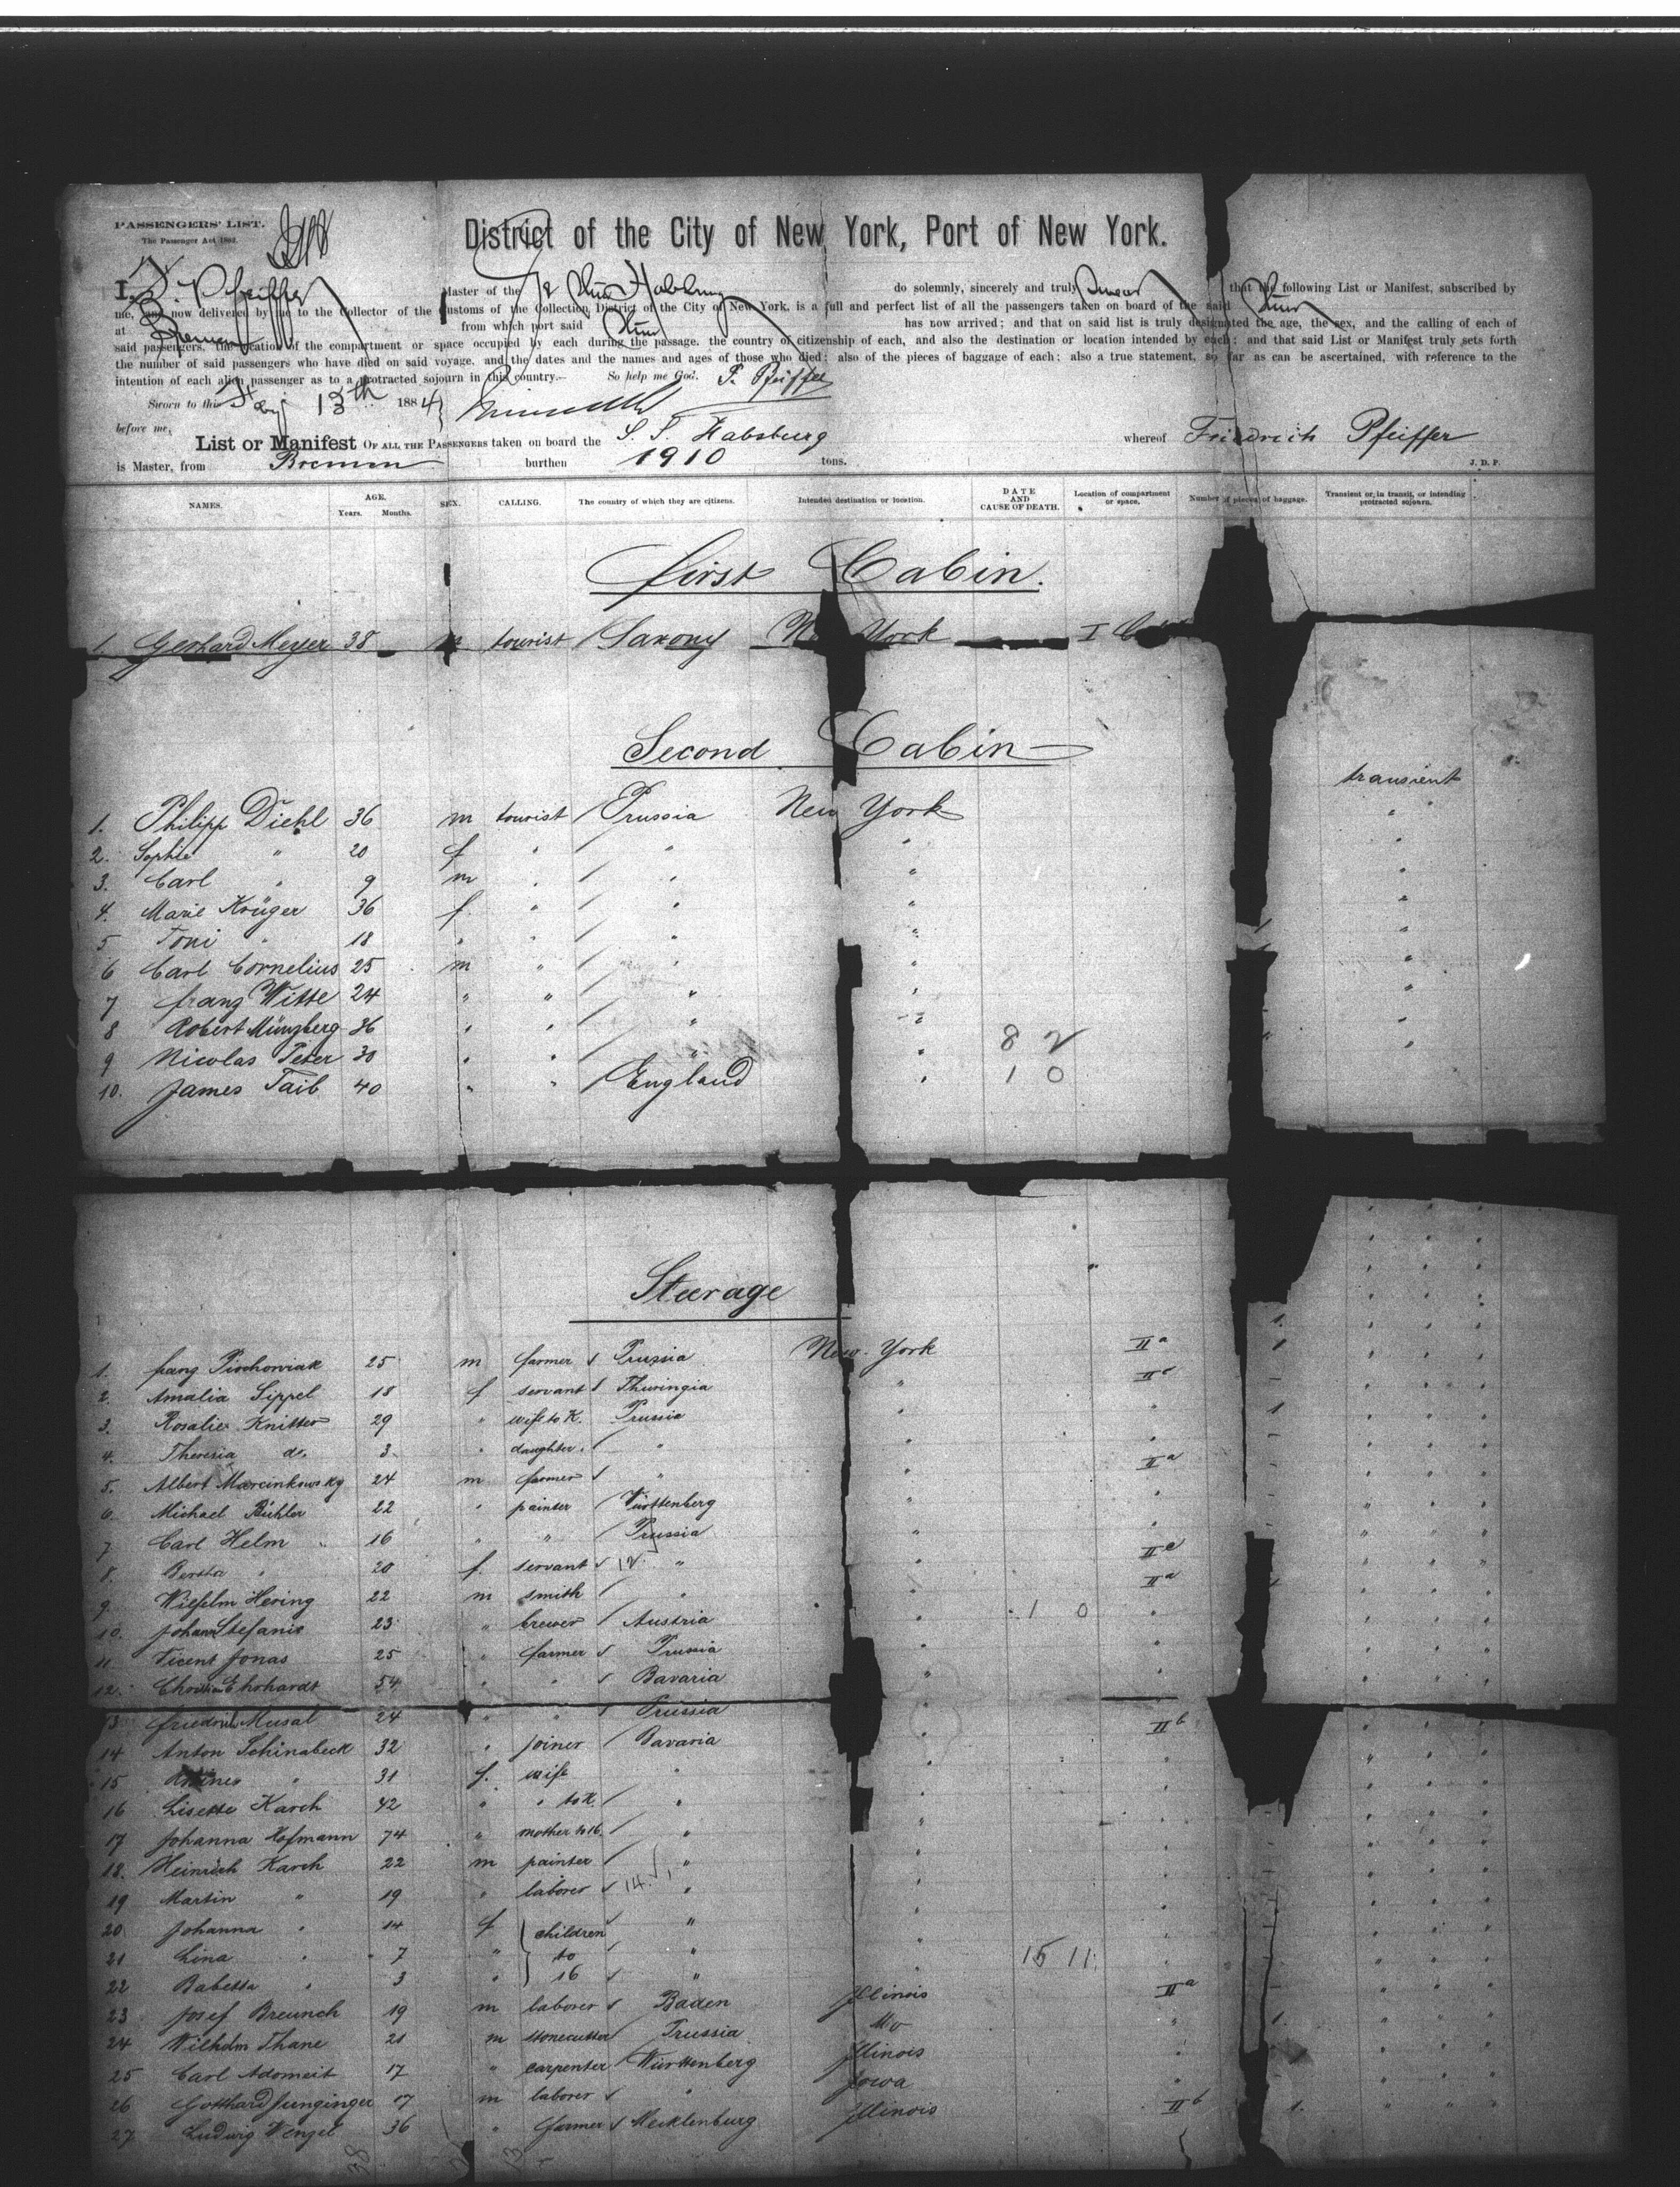 PASSENGERS' LIST.
The Passenger Act 1882.
District of the City of New York, Port of New York.
I, F. Pfeiffer Master of the do solemnly, sincerely and truly swear that the following List or Manifest, subscribed by
me, and now delivered by me to the Collector of the Customs of the Collection District of the City of New York, is a full and perfect list of all the passengers taken on board of the said
at Bremen from which port said has now arrived; and that on said list is truly designated the age, the sex, and the calling of each of
said passengers, the location of the compartment or space occupied by each during the passage, the country of citizenship of each, and also the destination or location intended by each; and that said List or Manifest truly sets forth
the number of said passengers who have died on said voyage, and the dates and the names and ages of those who died; also of the pieces of baggage of each; also a true statement, so far as can be ascertained, with reference to the
intention of each alien passenger as to a protracted sojourn in this country.— So help me God. F. Pfeiffer
Sworn to this 13th 1884
before me,
List or Manifest OF ALL THE PASSENGERS taken on board the S. S. Habsburg whereof Friedrich Pfeiffer
is Master, from Bremen burthen 1910 tons. J. D. P.
NAMES. AGE. Years. Months. SEX. CALLING. The country of which they are citizens. Intended destination or location. DATE AND CAUSE OF DEATH. Location of compartment or space. Number of pieces of baggage. Transient or, in transit, or intending protracted sojourn.
First Cabin.
1. Gerhard Meyer 38 m tourist / Saxony New York — I
Second Cabin
transient
1. Philipp Diehl 36 m tourist / Prussia New York "
2. Sophie " 20 f " / " " "
3. Carl " 9 m " / " " "
4. Marie Krüger 36 f. " / " " "
5 Toni " 18 " " / " " "
6 Carl Cornelius 25 m " / " " "
7 Franz Witte 24 " " / " " "
8 Robert Münzberg 36 " " / " " "
9 Nicolas Peter 30 " " / " " 8 2 "
10. James Tail 40 " " / England " 1 0
Steerage
1. Franz 25 m farmer Prussia New York IIa 1
2. Amalia Lippel 18 f servant Thuringia " IIc –
3. Rosalie Knitter 29 " wife to K. Prussia " " 1
4. Theresia do. 3 " daughter / " " " –
5. Albert Marcinkowsky 24 m farmer " " IIa –
6. Michael Bühler 22 " painter / Württenberg " " –
7 Carl Helm 16 " " / Prussia " " –
8. Bertha " 20 f. servant 12 " " IIc
9. Wilhelm Hering 22 m smith / " " IIa
10. Johann Stefanis 23 " brewer / Austria " 1 0 "
11. Vicent Jonas 25 " farmer Prussia " "
12. Ehrhardt 54 " " Bavaria " "
13 Friedrich Musal 24 " " Prussia "
14 Anton Schinabeck 32 " joiner / Bavaria " IIb
15 " 31 f. wife " " "
16 Lisette Karch 42 " " to K. / " " "
17 Johanna Hofmann 74 " mother to 16. / " " "
18. Heinrich Karch 22 m painter / " " "
19 Martin " 19 " laborer 14. " " "
20 Johanna " 14 f children " " "
21 Lina " 7 " to " " 15 11 "
22 Babetta " 3 " 16 " " "
23 Josef Breunch 19 m laborer Baden Illinois IIa
24 Wilhelm Thane 21 m stonecutter / Prussia Mo " 1.
25 Carl Adomeit 17 " carpenter / Württenberg Illinois "
26 Gotthard Junginger 17 m laborer " Iowa "
27 Ludwig Wenzel 36 " farmer Mecklenburg Illinois IIb 1.